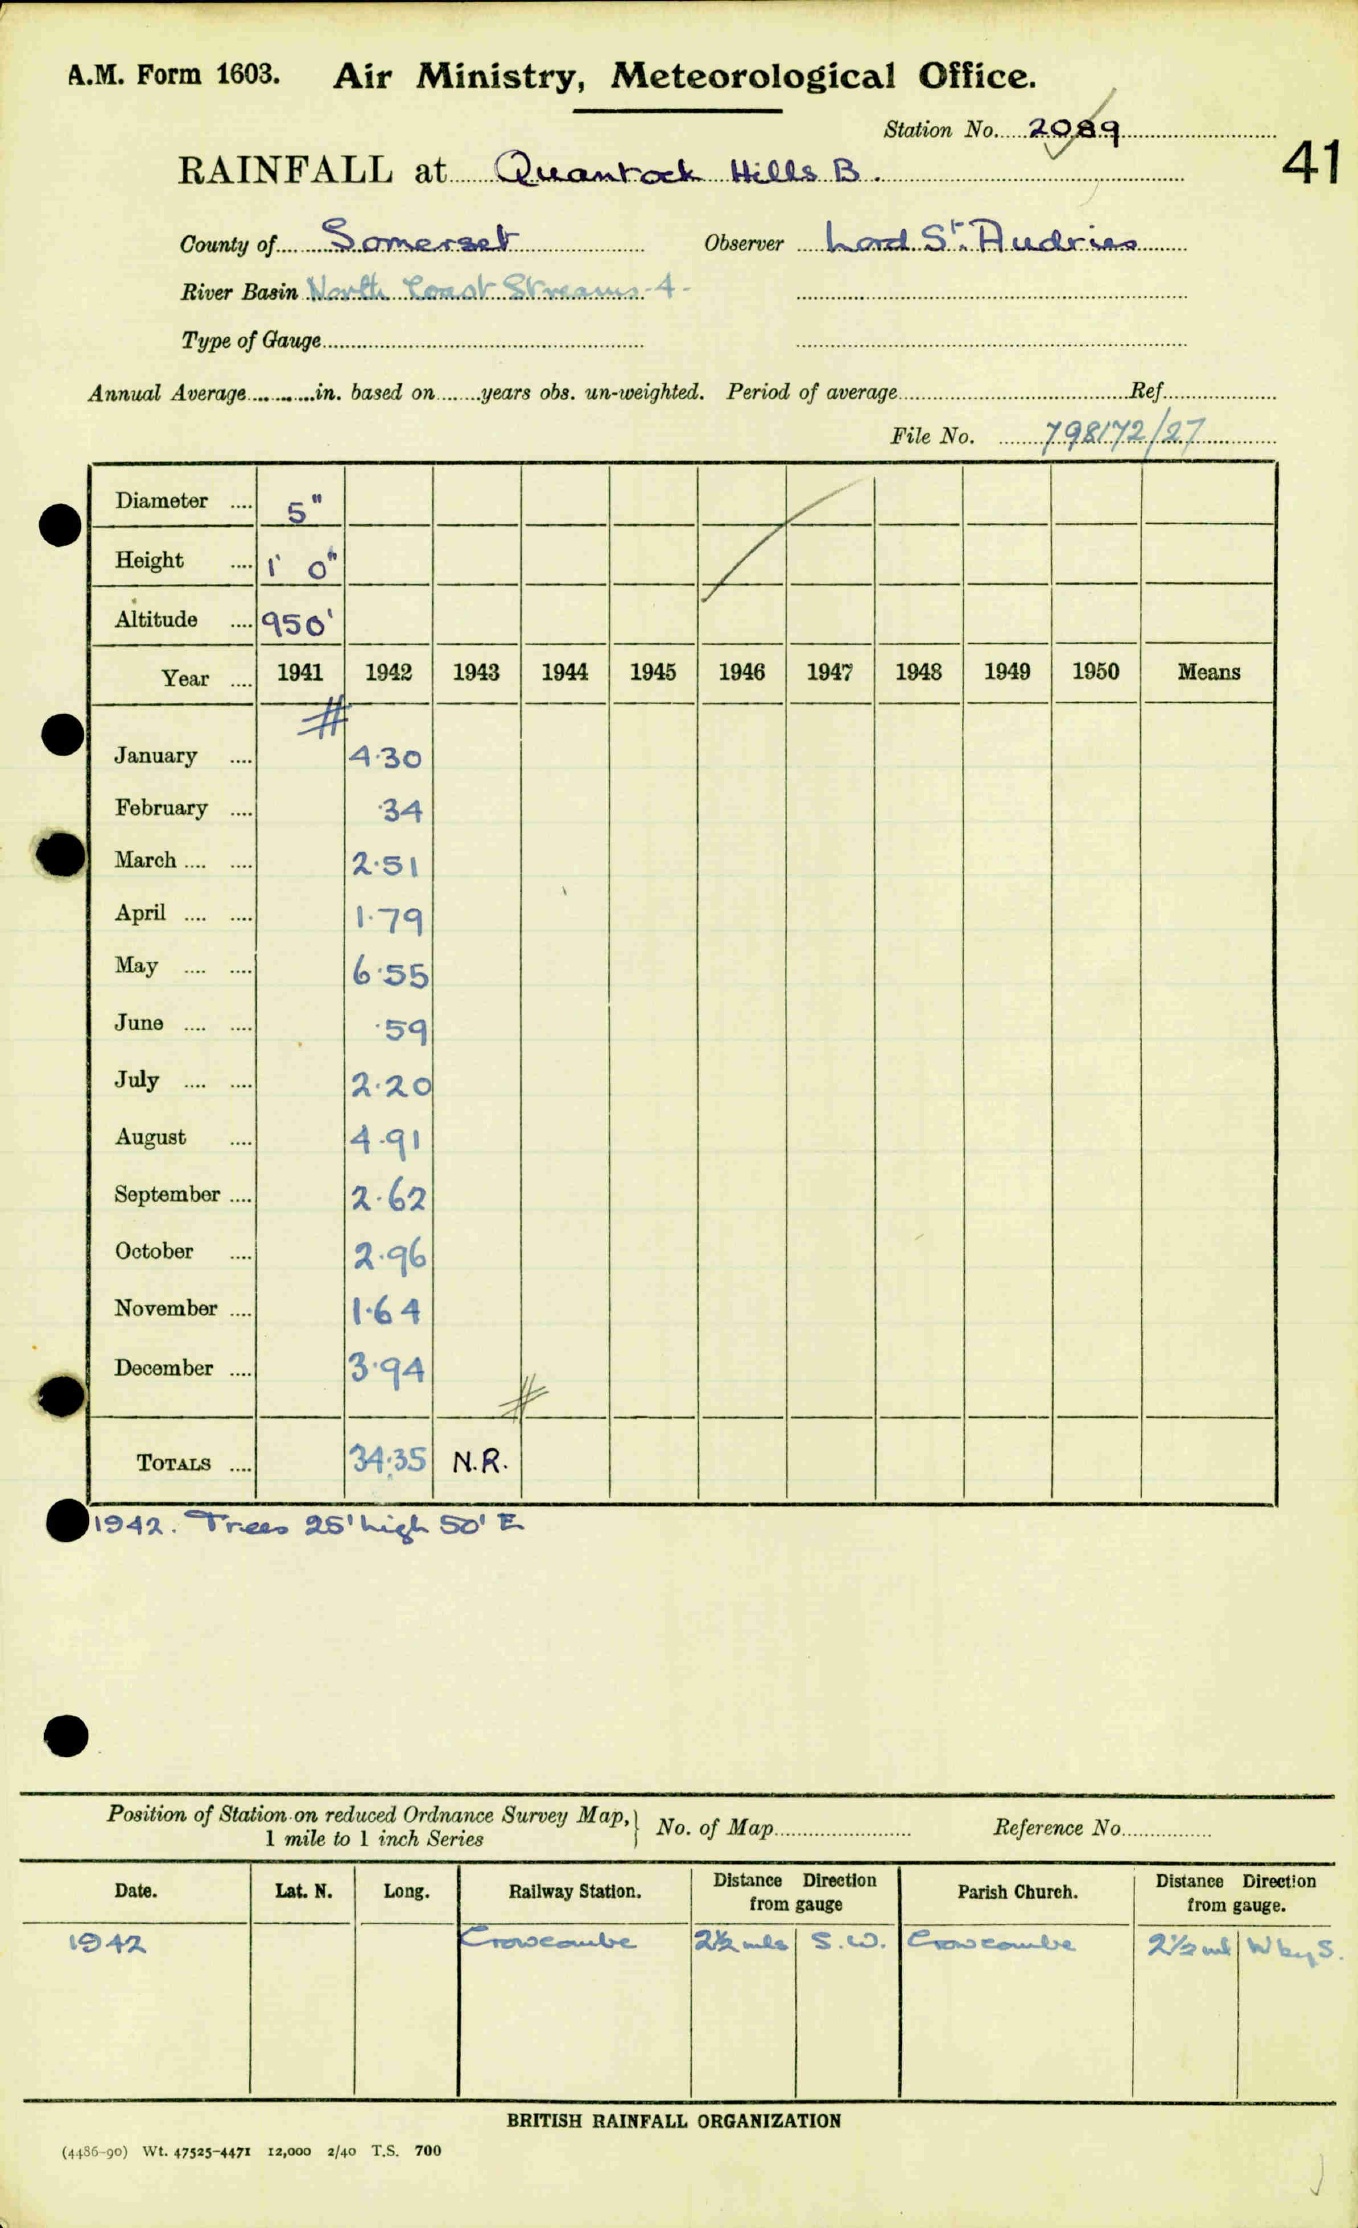 A.M. Form 1603. Air Ministry, Meteorological Office.
Station No. 2089
41
RAINFALL at Quantock Hills B.
County of Somerset Observer Lord St. Audries
River Basin North Coast Streams -4-
Type of Gauge
Annual Average in. based on years obs. un-weighted. Period of average Ref.
File No. 798172/27
Diameter .... 5"
Height .... 1' 0"
Altitude .... 950'
Year .... 1941 1942 1943 1944 1945 1946 1947 1948 1949 1950 Means
#
January .... 4·30
February .... ·34
March .... .... 2·51
April .... .... 1·79
May .... .... 6·55
June .... .... ·59
July .... .... 2·20
August .... 4·91
September .... 2·62
October .... 2·96
November .... 1·64
December .... 3·94
#
TOTALS .... 34·35 N.R.
1942. Trees 25' high 50' E
Position of Station on reduced Ordnance Survey Map, } No. of Map Reference No.
1 mile to 1 inch Series
Date. Lat. N. Long. Railway Station. Distance from gauge Direction Parish Church. Distance from gauge. Direction
1942 Crowcombe 2½ mls S.W. Crowcombe 2½ ml W by S.
BRITISH RAINFALL ORGANIZATION
(4486-90) Wt. 47525-4471 12,000 2/40 T.S. 700